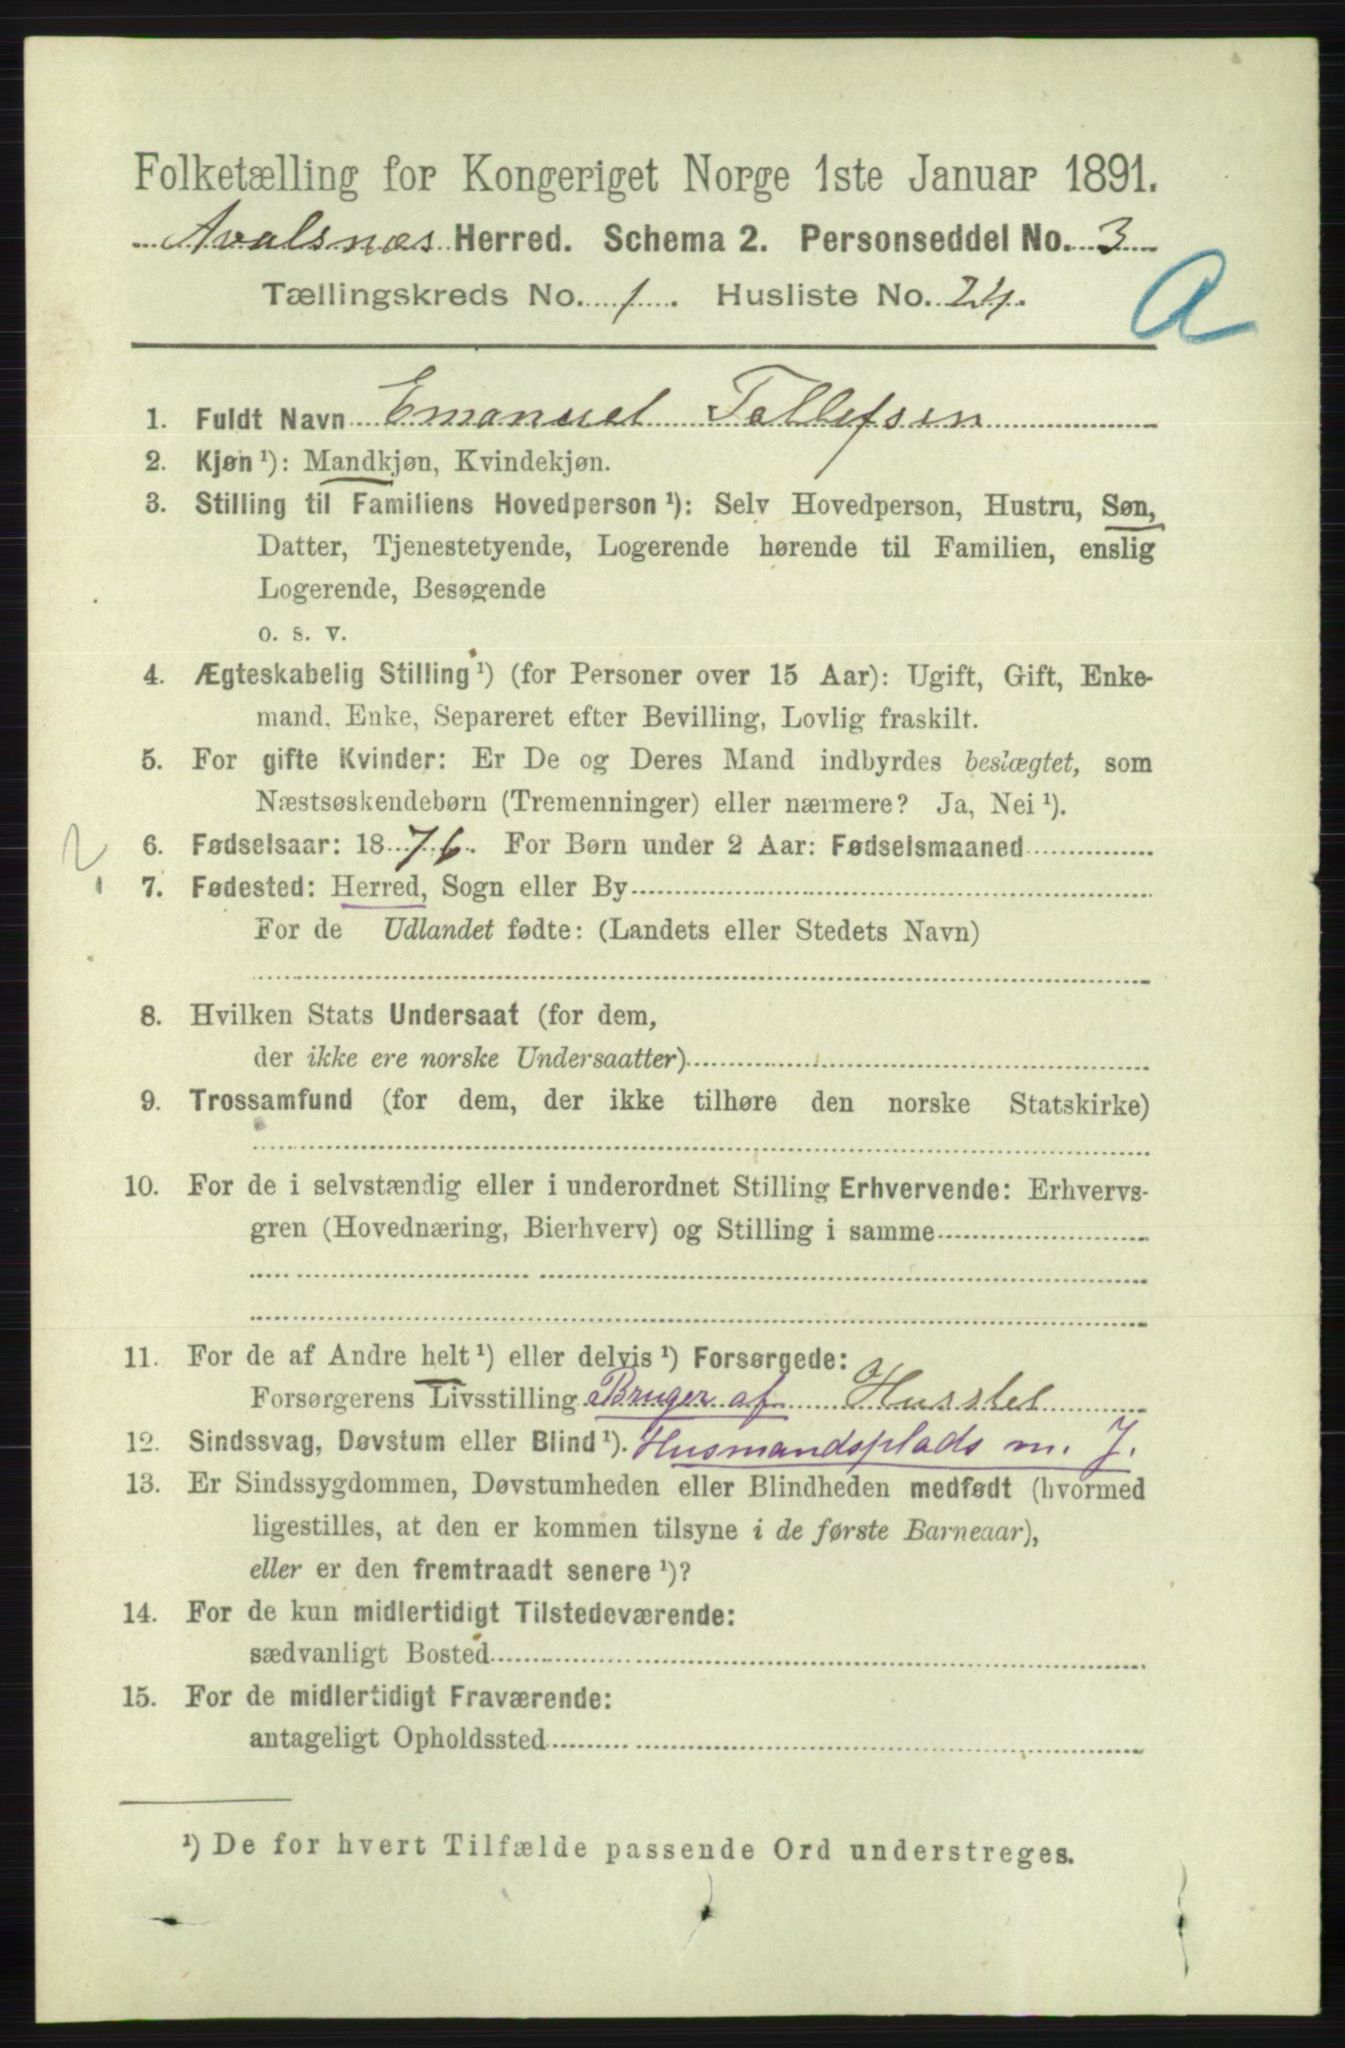 Folketælling for Kongeriget Norge 1ste Januar 1891.
Avalsnæs Herred. Schema 2. Personseddel No. 3
Tællingskreds No. 1. Husliste No. 24.
A
1. Fuldt Navn Emanuel Tollefsen
2. Kjøn ¹): Mandkjøn, Kvindekjøn.
3. Stilling til Familiens Hovedperson ¹): Selv Hovedperson, Hustru, Søn,
Datter, Tjenestetyende, Logerende hørende til Familien, enslig
Logerende, Besøgende
o. s. v.
4. Ægteskabelig Stilling ¹) (for Personer over 15 Aar): Ugift, Gift, Enke-
mand, Enke, Separeret efter Bevilling, Lovlig fraskilt.
5. For gifte Kvinder: Er De og Deres Mand indbyrdes beslægtet, som
Næstsøskendebørn (Tremenninger) eller nærmere? Ja, Nei ¹).
6. Fødselsaar: 1876. For Børn under 2 Aar: Fødselsmaaned
7. Fødested: Herred, Sogn eller By
For de Udlandet fødte: (Landets eller Stedets Navn)
8. Hvilken Stats Undersaat (for dem,
der ikke ere norske Undersaatter)
9. Trossamfund (for dem, der ikke tilhøre den norske Statskirke)
10. For de i selvstændig eller i underordnet Stilling Erhvervende: Erhvervs-
gren (Hovednæring, Bierhverv) og Stilling i samme
11. For de af Andre helt ¹) eller delvis ¹) Forsørgede:
Forsørgerens Livsstilling Bruger af
12. Sindssvag, Døvstum eller Blind ¹). Husmandsplads m. J.
13. Er Sindssygdommen, Døvstumheden eller Blindheden medfødt (hvormed
ligestilles, at den er kommen tilsyne i de første Barneaar),
eller er den fremtraadt senere ¹)?
14. For de kun midlertidigt Tilstedeværende:
sædvanligt Bosted
15. For de midlertidigt Fraværende:
antageligt Opholdssted
¹) De for hvert Tilfælde passende Ord understreges.